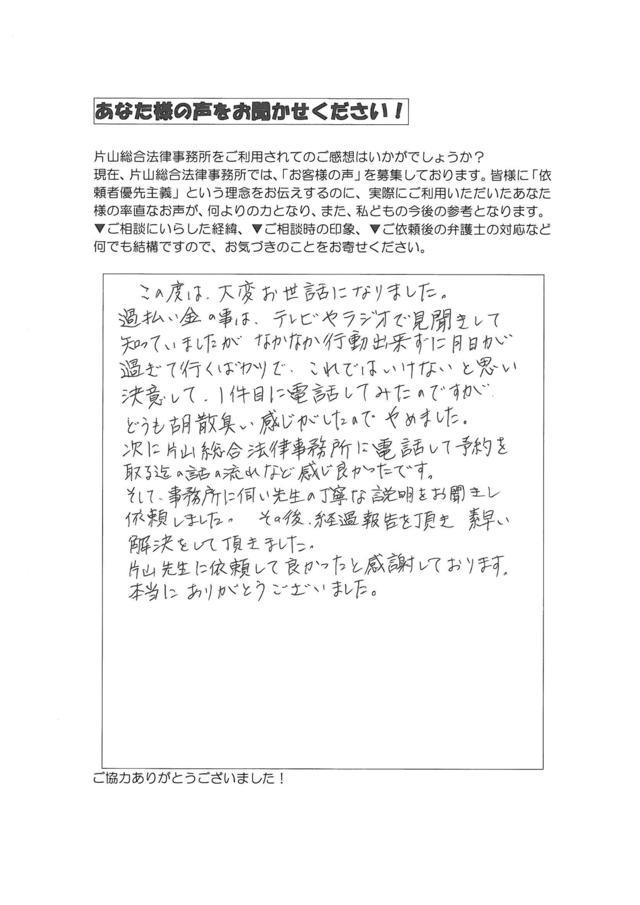 あなた様の声をお聞かせください！
片山総合法律事務所をご利用されてのご感想はいかがでしょうか？
現在、片山総合法律事務所では、「お客様の声」を募集しております。皆様に「依
頼者優先主義」という理念をお伝えするのに、実際にご利用いただいたあなた
様の率直なお声が、何よりの力となり、また、私どもの今後の参考となります。
▼ご相談にいらした経緯、▼ご相談時の印象、▼ご依頼後の弁護士の対応など
何でも結構ですので、お気づきのことをお寄せください。
この度は、大変お世話になりました。
過払い金の事は、テレビやラジオで見聞きして
知っていましたが なかなか行動出来ずに月日が
過ぎて行くばかりで、これではいけないと思い
決意して、1件目に電話してみたのですが、
どうも胡散臭い感じがしたのでやめました。
次に片山総合法律事務所に電話して予約を
取る迄の話の流れなど感じ良かったです。
そして、事務所に伺い先生の丁寧な説明をお聞きし
依頼しました。 その後、経過報告を頂き 素早い
解決をして頂きました。
片山先生に依頼して良かったと感謝しております。
本当に ありがとうございました。
ご協力ありがとうございました！